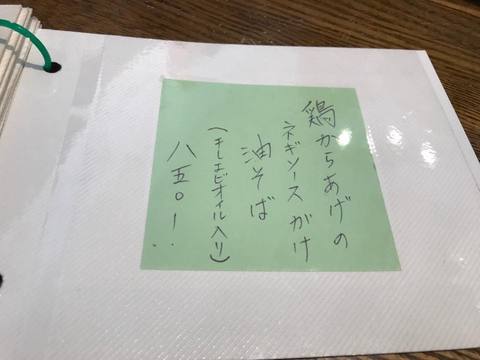 鶏からあげの
ネギソースがけ
油そば
(干しエビオイル入り)
八五〇ー.